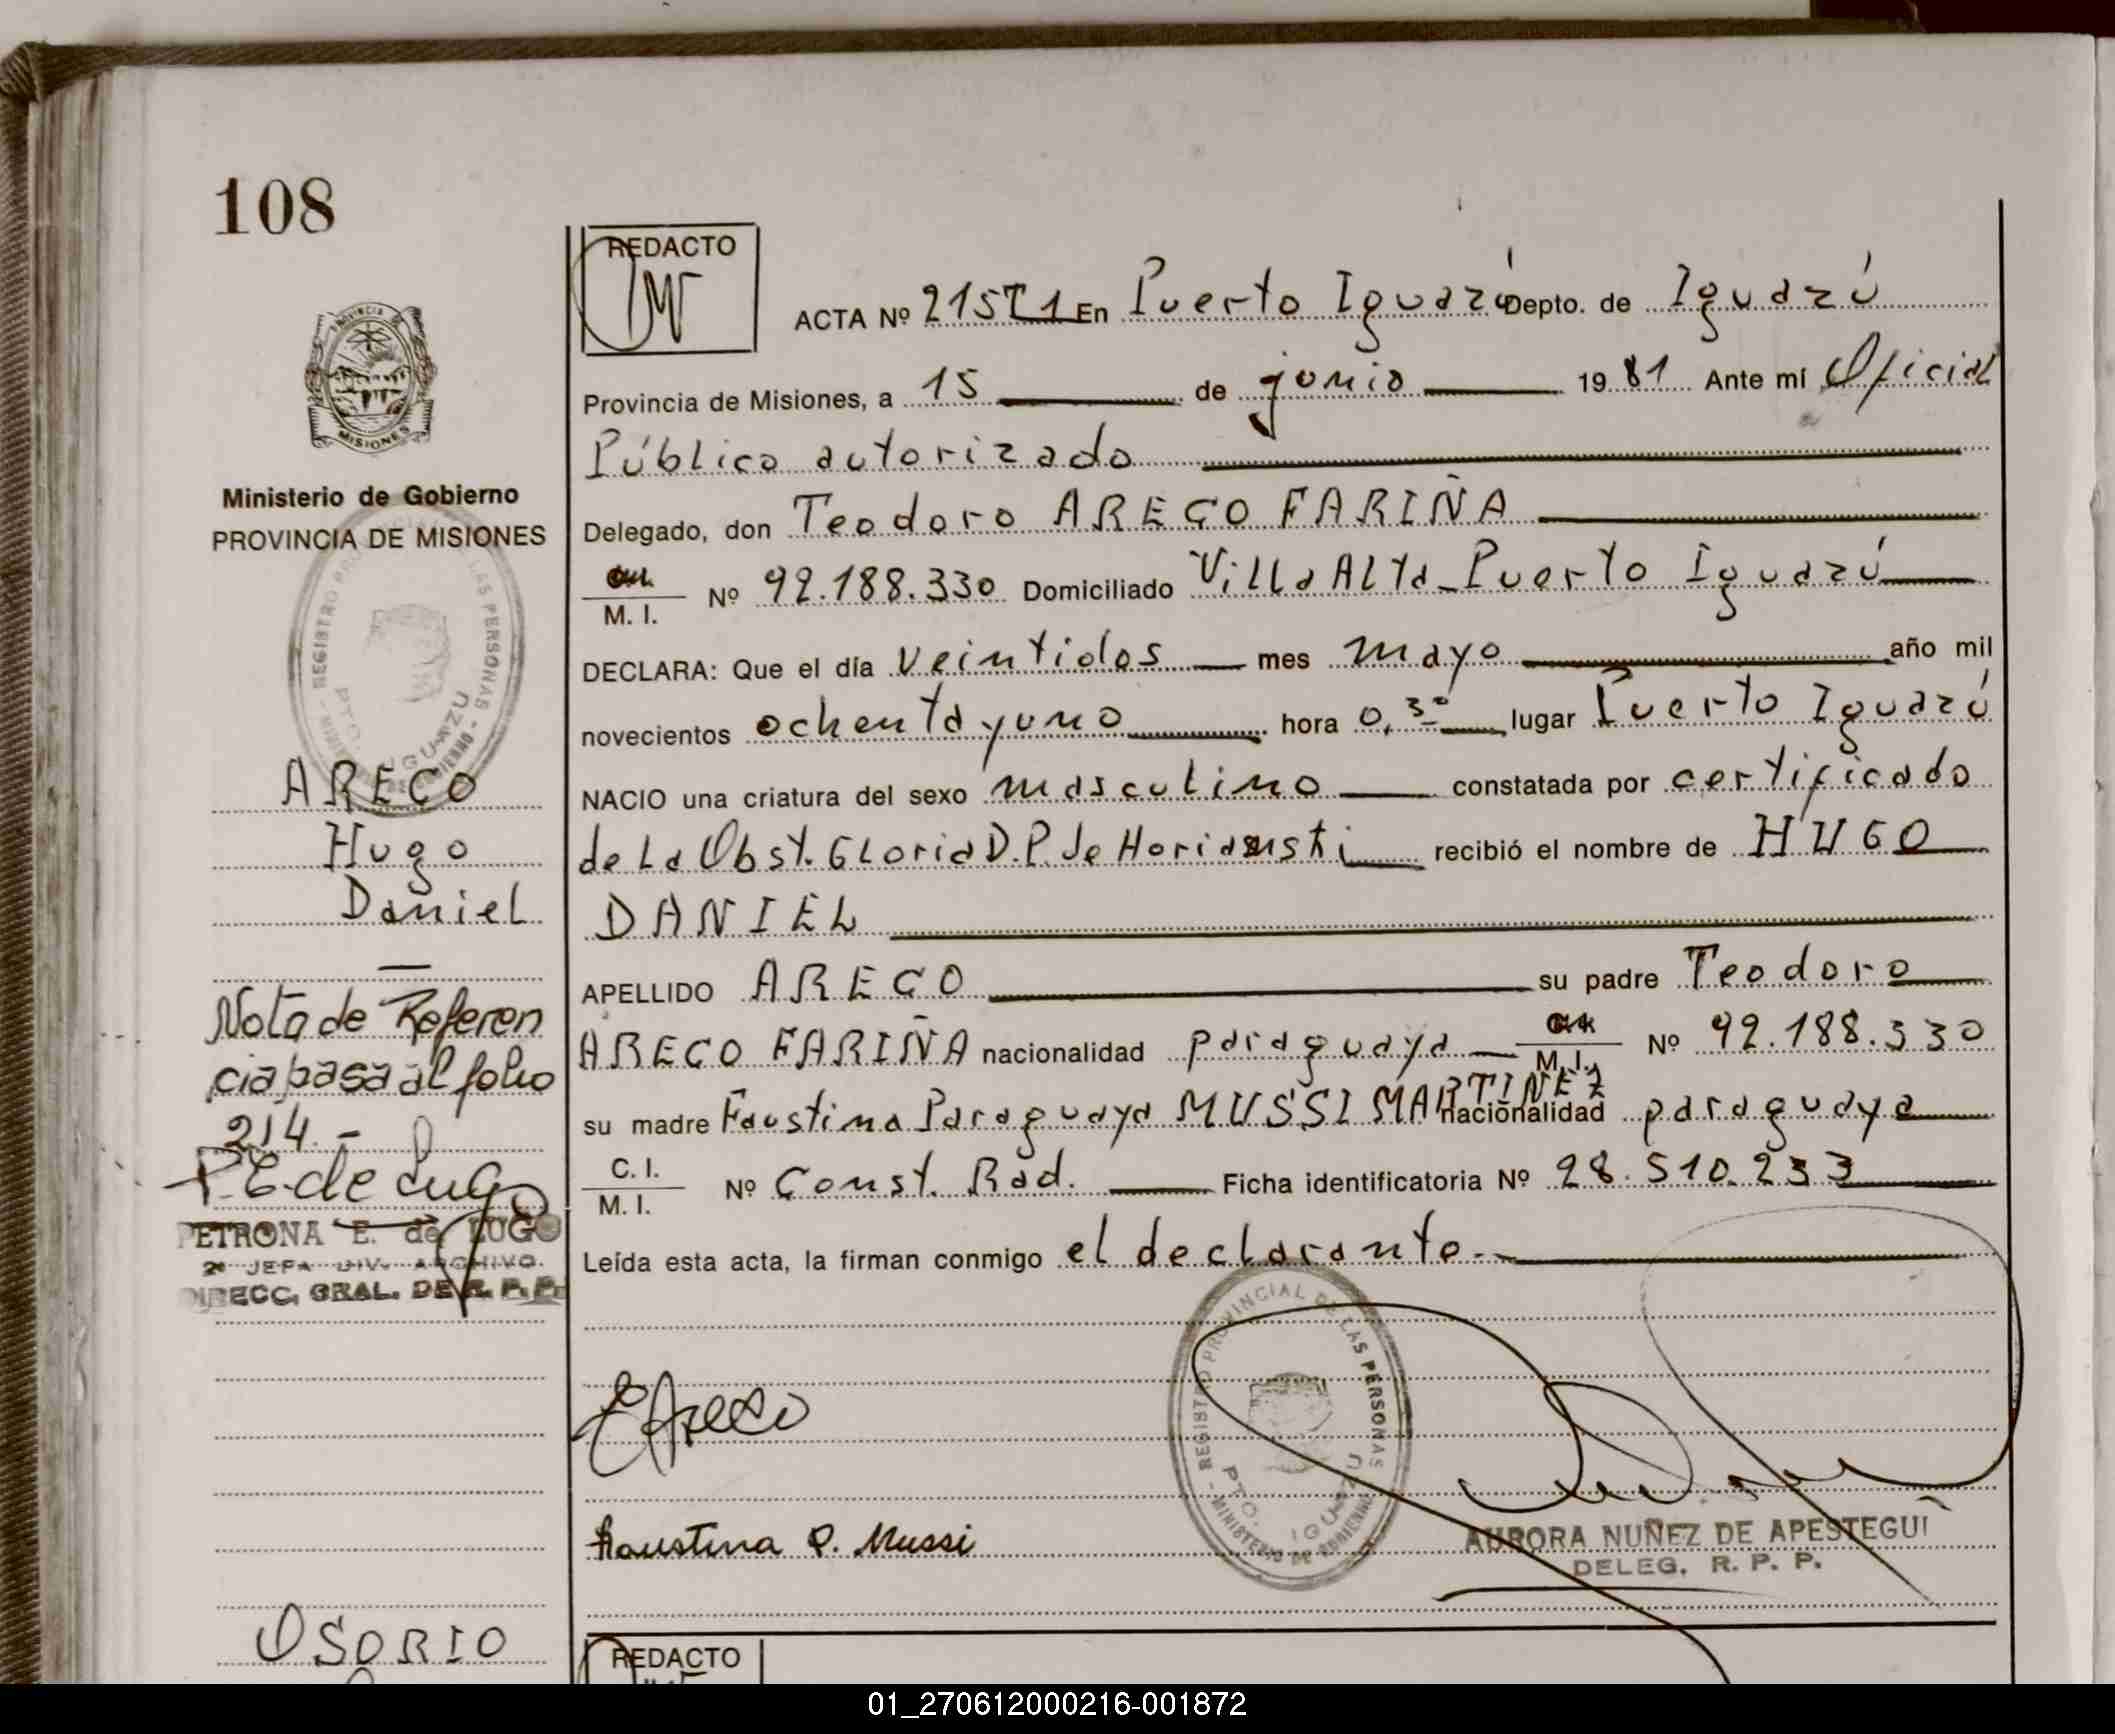 108
REDACTO
ACTA Nº 215T1 En Puerto Iguazú Depto. de Iguazú
Provincia de Misiones, a 15 de junio 1981 Ante mí Oficial
Público autorizado
Delegado, don Teodoro ARECO FARIÑA
M. I. Nº 92.188.330 Domiciliado Villa Alta - Puerto Iguazú
DECLARA: Que el día veintidos mes mayo año mil
novecientos ochenta y uno hora 0,30 lugar Puerto Iguazú
NACIO una criatura del sexo masculino constatada por certificado
de la Obst. Gloria D. P. de recibió el nombre de HUGO
DANIEL
APELLIDO ARECO su padre Teodoro
ARECO FARIÑA nacionalidad paraguaya M. I. Nº 92.188.330
su madre Faustina Paraguaya MUSSI MARTINEZ nacionalidad paraguaya
C. I.
M. I. Nº Const. Rad. Ficha identificatoria Nº 28.510.233
Leída esta acta, la firman conmigo el declarante.-
EAreco
Faustina P. Mussi
REGISTRO PROVINCIAL DE LAS PERSONAS
PTO. IGUAZU
MINISTERIO DE GOBIERNO
AURORA NUÑEZ DE APESTEGUI
DELEG. R. P. P.
PROVINCIA DE
MISIONES
Ministerio de Gobierno
PROVINCIA DE MISIONES
REGISTRO LAS PERSONAS
PTO. IGUAZU
ARECO
Hugo
Daniel
Nota de Referen
cia pasa al folio
214.-
P. E. de Lugo
PETRONA E. de LUGO
2ª JEFA DIV. ARCHIVO
DIRECC. GRAL. DE R. P. P.
OSORIO
REDACTO
01_270612000216-001872